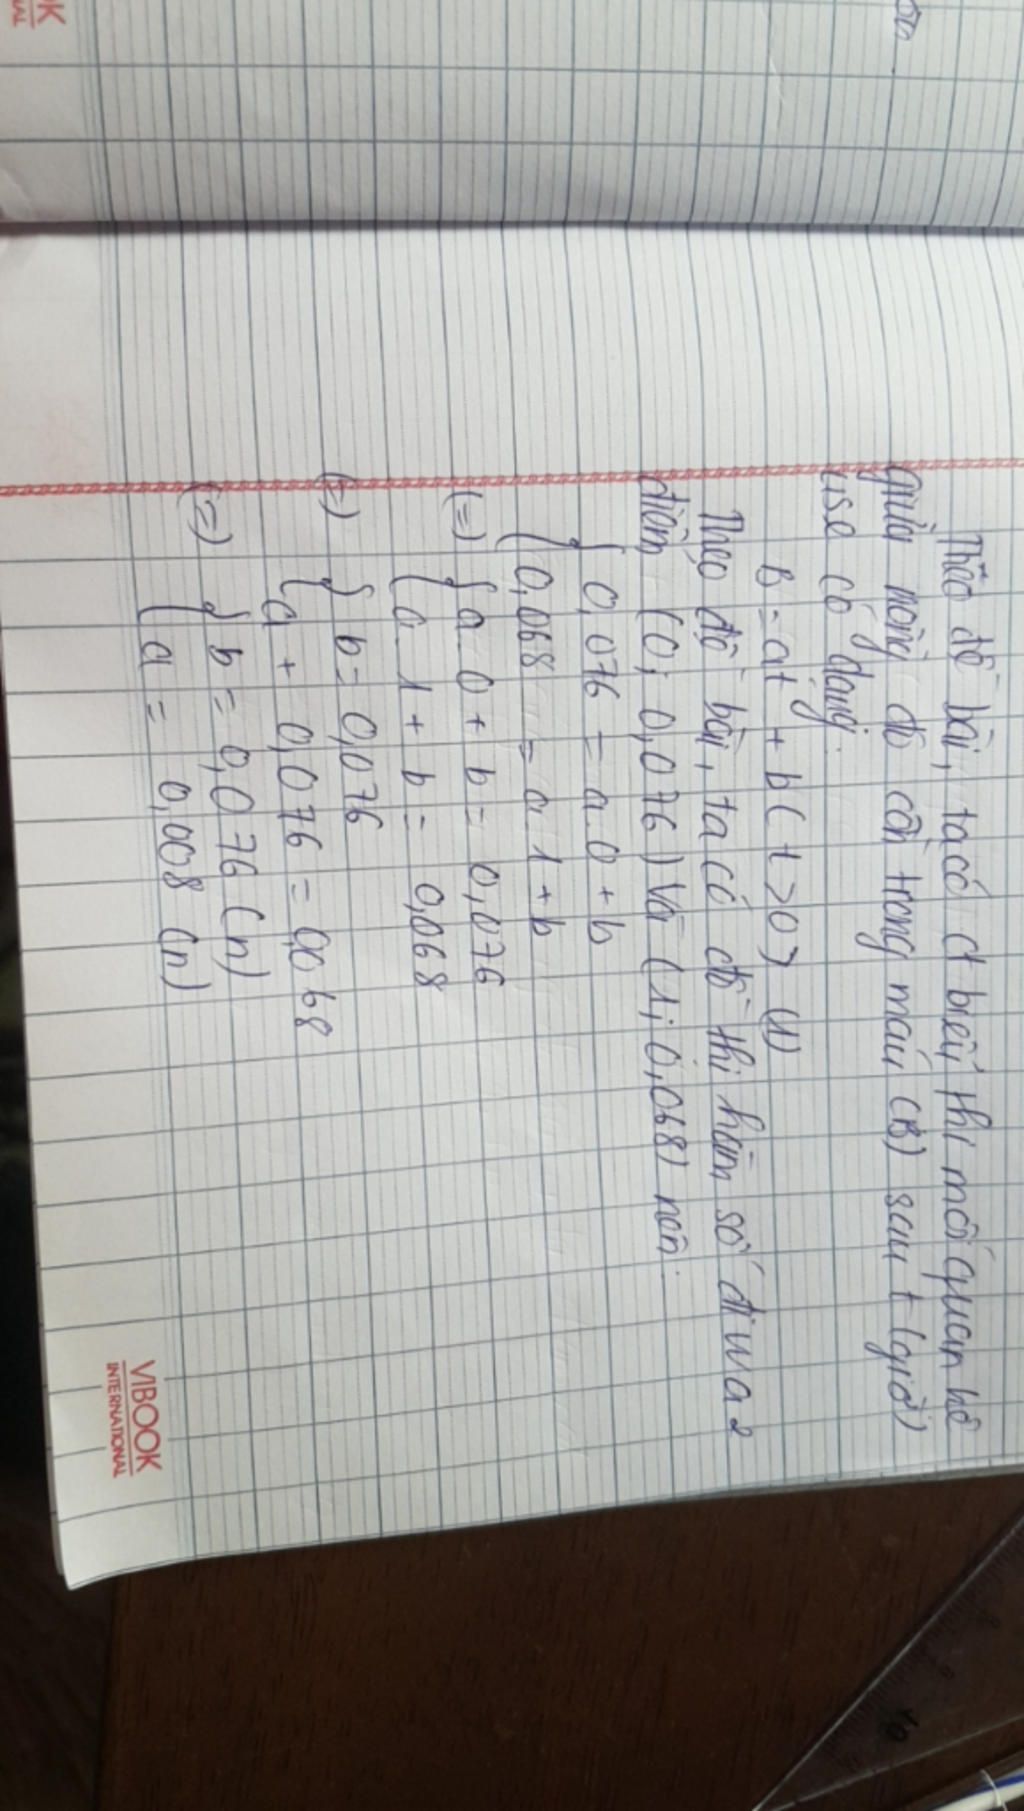 Theo đề bài, ta có ct biểu thị mối quan hệ
giữa nồng độ cồn trong máu (B) sau t (giờ)
use có dạng:
B = at + b ( t > 0 ) (1)
Theo đề bài, ta có đồ thị hàm số đi wa 2
điểm (0; 0,076) Và (1; 0,068) nên:
{ 0,076 = a.0 + b
{ 0,068 = a.1 + b
(=) { a.0 + b = 0,076
{ a.1 + b = 0,068
(=) { b = 0,076
{ a + 0,076 = 0,068
(=) { b = 0,076 (n)
{ a = 0,008 (n)
VIBOOK
INTERNATIONAL